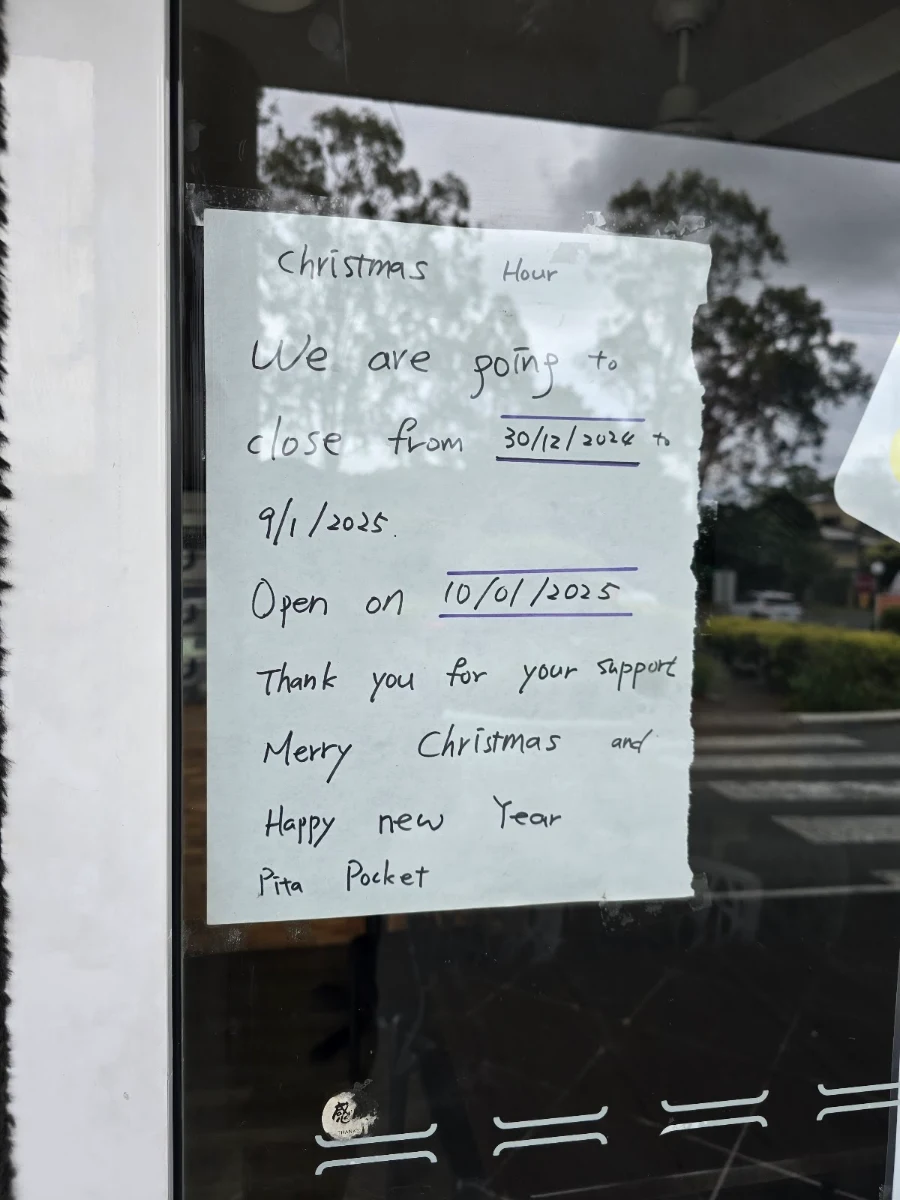 Christmas Hour
We are going to
close from 30/12/2024 to
9/1/2025.
Open on 10/01/2025
Thank you for your support
Merry Christmas and
Happy new Year
Pita Pocket
感
THANKS